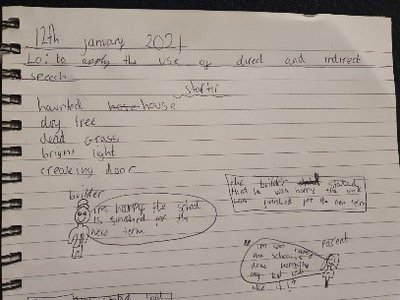 12th january 2021
Lo: to apply the use of direct and indirect
speech
starter
haunted house
dry tree
dead grass
bright light
creaking door
builder
im happy the school
is finished for the
new term
the builder stated
that he was happy the
was finished for the new term
parent
"im
the school
done
my
like it!"